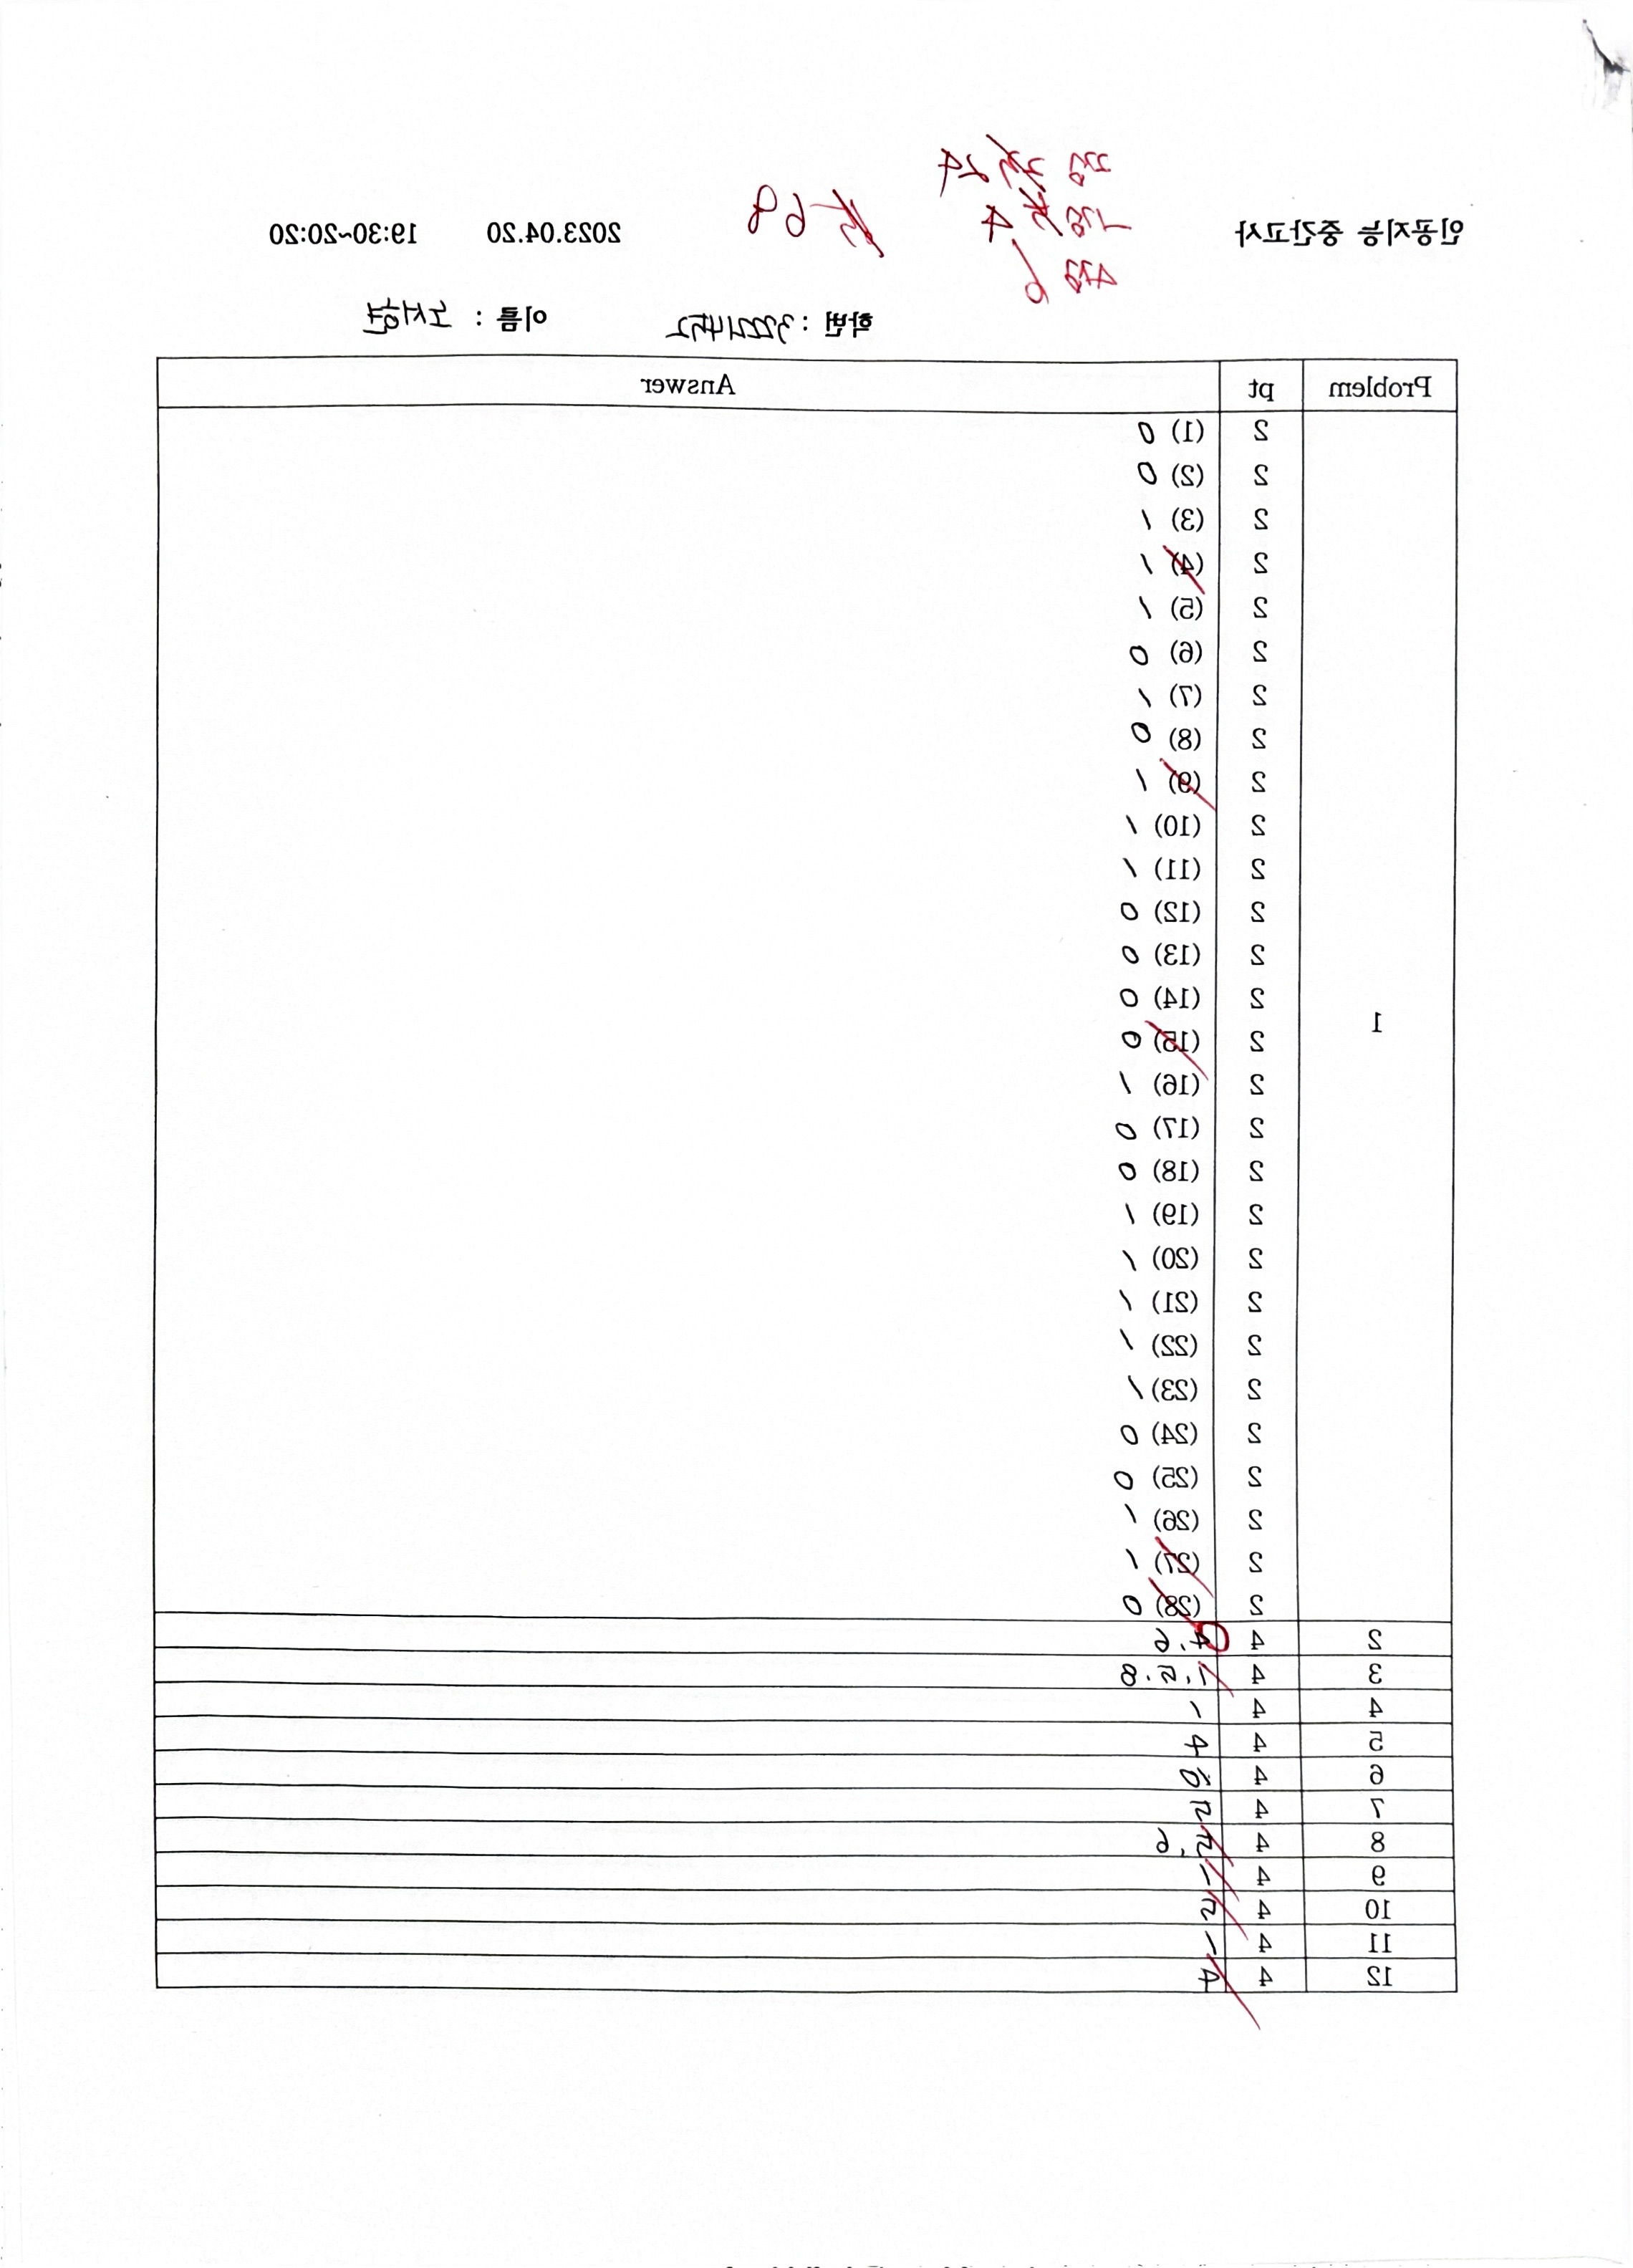 인공지능 중간고사 2023.04.20 19:30~20:20
68
학번 : 32221452 이름 : 노서현
Problem pt Answer
1
2 (1) 0
2 (2) 0
2 (3) 1
2 (4) 1
2 (5) 1
2 (6) 0
2 (7) 1
2 (8) 0
2 (9) 1
2 (10) 1
2 (11) 1
2 (12) 0
2 (13) 0
2 (14) 0
2 (15) 0
2 (16) 1
2 (17) 0
2 (18) 0
2 (19) 1
2 (20) 1
2 (21) 1
2 (22) 1
2 (23) 1
2 (24) 0
2 (25) 0
2 (26) 1
2 (27) 1
2 (28) 0
2 4 4.6
3 4 1.5.8
4 4 1
5 4 4
6 4
7 4 2
8 4 2.6
9 4 1
10 4 2
11 4 1
12 4 4